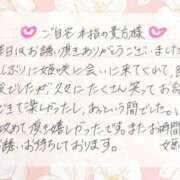 ご自宅 本指の貴方様
昨日はお誘い頂きありがとうございました
久しぶりに姫咲に会いに来てくれて
久々にたくさん笑ってお
できて楽しかったし、あっという間でした。
改めて頂き嬉しかったです。またお時間
お誘いお待ちしております。